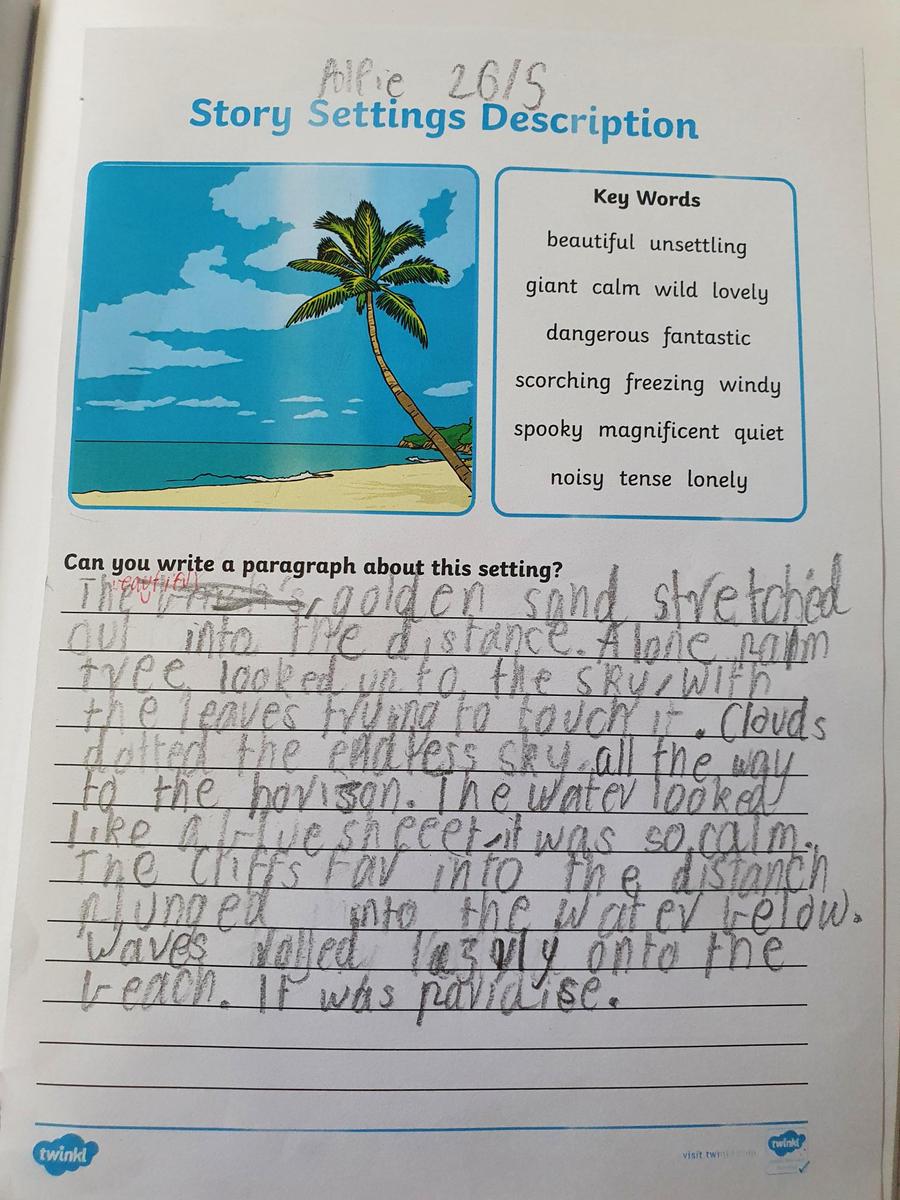 Alfie 26/5
Story Settings Description
Key Words
beautiful unsettling
giant calm wild lovely
dangerous fantastic
scorching freezing windy
spooky magnificent quiet
noisy tense lonely
Can you write a paragraph about this setting?
eautiful
The golden sand stretched
out into the distance. A lone palm
tree looked up to the sky, with
the leaves trying to touch it. Clouds
dotted the endless sky all the way
to the horison. The water looked
like a blue sheeet it was so calm.
The cliffs far into the distanch
plunged into the water below.
Waves rolled lazyly onto the
beach. It was paridise.
twinkl
visit twinkl.com
twinkl